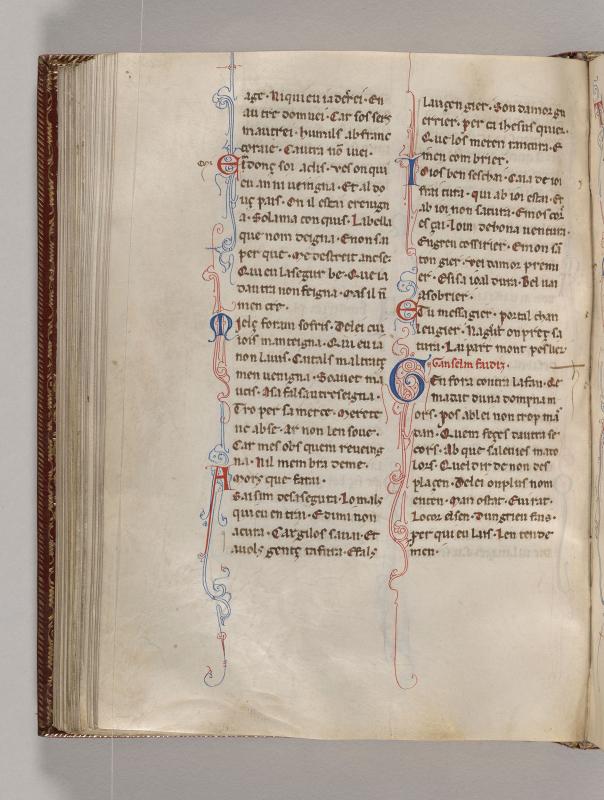 age. Ni qui eu ia derei. En
autre domnei. Car sos sers
m autrei. humils ab franc
coraie. Cautra nō vuei.
E donc soi aclis. ves on qui
eu an ni veingna. Et al do
uc pais. En il estai e reingn
a. So lam a conquis. La bella
que nom deingna. E non sai
per que. Me destreit anc se.
Qui eu la segur be. Que ia
dautra non feingna. Mas il nō
men cre.
Mielç forau sofris. Delei cui
iois manteingna. Qui eu ia
non lauis. Cautals maltraitz
men ueingna. Soauet ma
ucis. Ma fals autreseingna.
Tro per sa merce. Merete
ne abse. Ar non len soue.
Car mes obs quem reueing
na. Nil membra deme.
Amors que farai.
Gaisim desasegura. Lo mals
qui eu en trai. E dimi non
a cura. Car gilos sauai. Et
auols gentç tafura. E fals
lausengier. Son damor gu
errier. per cui ihesus quier.
Que los meten rancura. E
men combrier.
Dios ben seschai. Caia de ioi
fraitura. qui ab ioi estai. Et
ab ioi non satura. E mos cor
es çai. Loin de bona uentura
En gren cossirier. E mon sā
ton gier. vei damor premi
er. E fis a ioal dura. Bel uai
asobrier.
E tu messagier. portal chan
leugier. Na Guit on preç sa
tura. La ipart mont peslier
Gauselm faidiz.
Gen fora contra lafan. Ce
ma dat duna dompna m
ors. pos ab lei non trop mā
dan. Quem feçes dautra se
cors. Ab que saleuies mato
lors. Quel dir de non des
plaçen. De lei onplus nom
enten. Man ostat. Eui rat.
Locor el sen. Dun grieu fais.
per qui eu lais. Len tende
men.